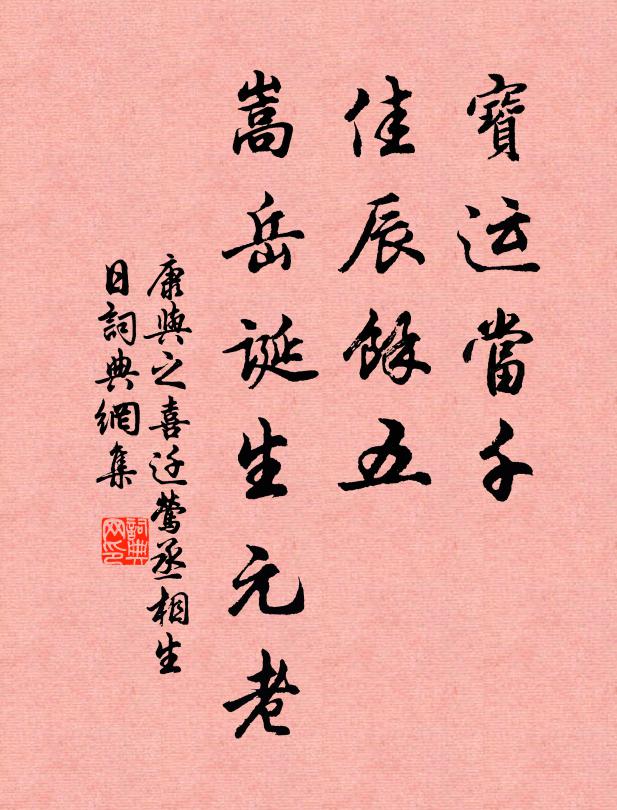 寶运當千
佳辰餘五
嵩岳誕生元老
康與之喜迁鶯丞相生
日詞典網集
詞典网印